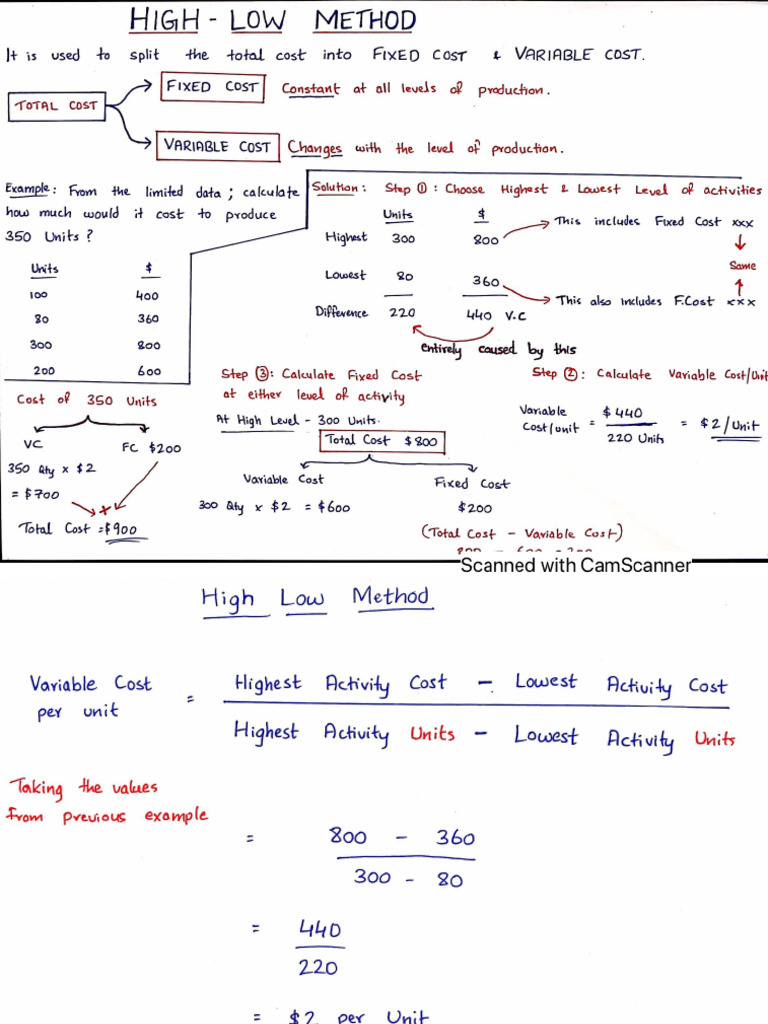 HIGH - LOW METHOD
It is used to split the total cost into FIXED COST & VARIABLE COST.
TOTAL COST
FIXED COST Constant at all levels of production.
VARIABLE COST Changes with the level of production.
Example: From the limited data ; calculate
how much would it cost to produce
350 Units ?
Units $
100 400
80 360
300 800
200 600
Solution: Step ①: Choose Highest & Lowest Level of activities
Units $
Highest 300 800 This includes Fixed Cost xxx
Same
Lowest 80 360 This also includes F.Cost xxx
Difference 220 440 V.C
entirely caused by this
Step ②: Calculate Variable Cost/Unit
Variable Cost/unit = $ 440 / 220 Units = $2/Unit
Step ③: Calculate Fixed Cost
at either level of activity
At High Level - 300 Units.
Total Cost $800
Variable Cost Fixed Cost
300 Qty x $2 = $600 $200
(Total Cost - Variable Cost)
Cost of 350 Units
VC FC $200
350 Qty x $2
= $700
+
Total Cost = $900
Scanned with CamScanner
High Low Method
Variable Cost per unit = Highest Activity Cost - Lowest Activity Cost
Highest Activity Units - Lowest Activity Units
Taking the values
from previous example
= 800 - 360
300 - 80
= 440
220
= $2 per Unit